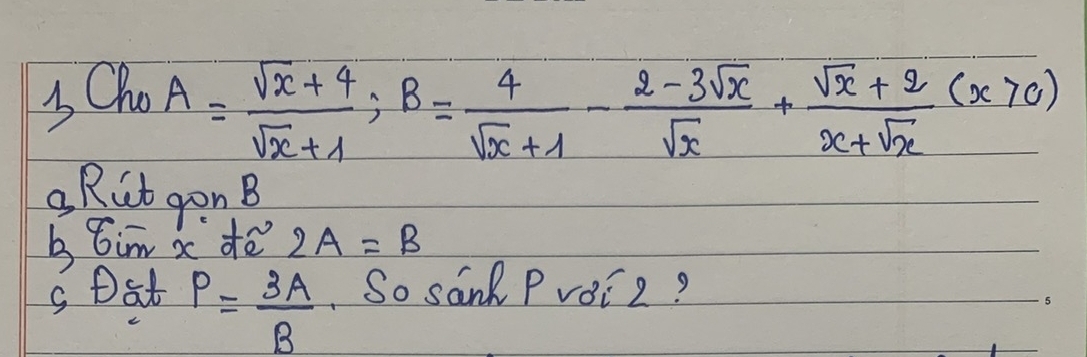 1, Cho A = (√x + 4)/(√x + 1) ; B = 4/(√x + 1) - (2 - 3√x)/√x + (√x + 2)/(x + √x) (x > 0)
a, Rút gọn B
b, Tìm x để 2A = B
c, Đặt P = 3A/B . So sánh P với 2 ?
5